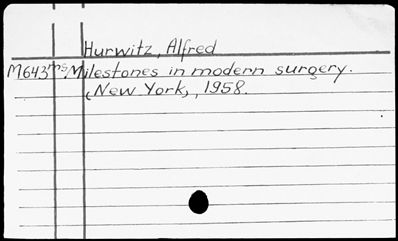 Hurwitz, Alfred
M643ms Milestones in modern surgery.
(New York, , 1958.